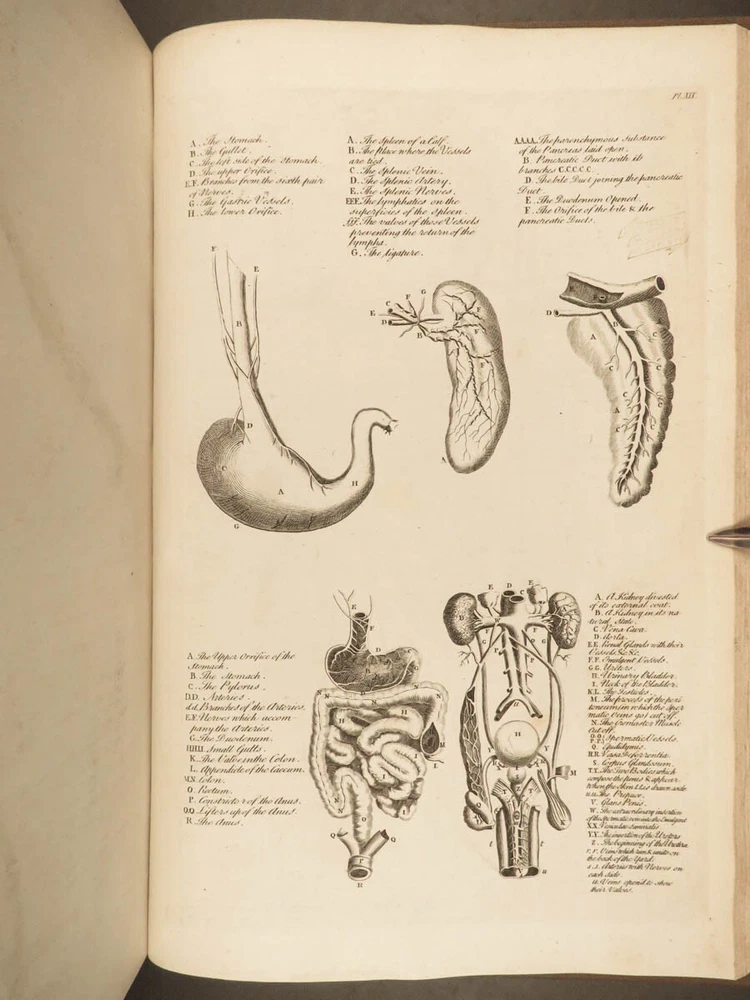 Pl. XIX.
A. The Stomach.
B. The Gullet.
C. The left side of the Stomach.
D. The upper Orifice.
E.F. Branches from the sixth pair
of Nerves.
G. The Gastric Vessels.
H. The lower Orifice.
A. The Spleen of a Calf.
B. The place where the Vessels
are tied.
C. The Splenic Vein.
D. The Splenic Artery.
E. The Splenic Nerves.
EEE. The lymphatics on the
superficies of the Spleen.
The valves of those Vessels
preventing the return of the
lympha.
G. The ligature.
A.A.A.A. The parenchymous Substance
of the Pancreas laid open.
B. Pancreatic Duct with its
branches C.C.C.C.C.
D. The bile Duct joining the pancreatic
Duct.
E. The Duodenum Opened.
F. The Orifice of the bile & the
pancreatic Ducts.
F
E
B
D
C
A
H
G
G
F
C
E
D
B
A
D
B
C
A
C
C
A
C
C
A The Upper Orrifice of the
Stomach.
B. The Stomach.
C. The Pylorus.
D.D. Arteries.
d.d. Branches of the Arteries.
E.F. Nerves which accom-
pany the Arteries.
G. The Duodenum.
HHH. Small Gutts.
K. The Valve in the Colon.
L. Appendicle of the Caecum.
N.N. Colon.
O. Rectum.
P. Constrictor of the Anus.
Q.Q. Lifters up of the Anus.
R. The Anus.
E
F
D
N
N
N
H
H
M
I
I
L
N
O
Q
Q
P
R
E
D
C
E
D
B
F
G
P
G
H
Y
Y
M
T
T
t
u
A. A Kidney divested
of its external coat.
B. A Kidney in its na-
tural state.
C. Vena Cava.
D. Aorta.
E.E. Renal Glands with their
Vessels &c. &c.
F.F. Emulgent Vessels.
G.G. Ureters.
H. Urinary Bladder.
I. Neck of the Bladder.
K.L. The Testicles.
M. The process of the peri-
toneum in which the Sper
matic Veins got cut off.
N. The Cremaster Muscle
Cut off.
Spermatic Vessels.
Q. Epididymis.
R.R. Vasa Deferrentia.
S. Corpus Glandosum.
T.T. The Two Bodies which
compose the penis & appear
When the Skin Was drawn aside
u.u. The Prepuce.
V. Glans Penis.
W. The extraordinary insertion
of the spermatic vein into the Emulgent
X.X. Vesiculae Seminales
Y.Y. The insertion of the Ureters
Z. The beginning of the Urethra
r.r. Veins which run & unite on
the back of the Yard.
s.s. Arteries with Nerves on
each side.
tt. Veins open'd to shew
their Valves.